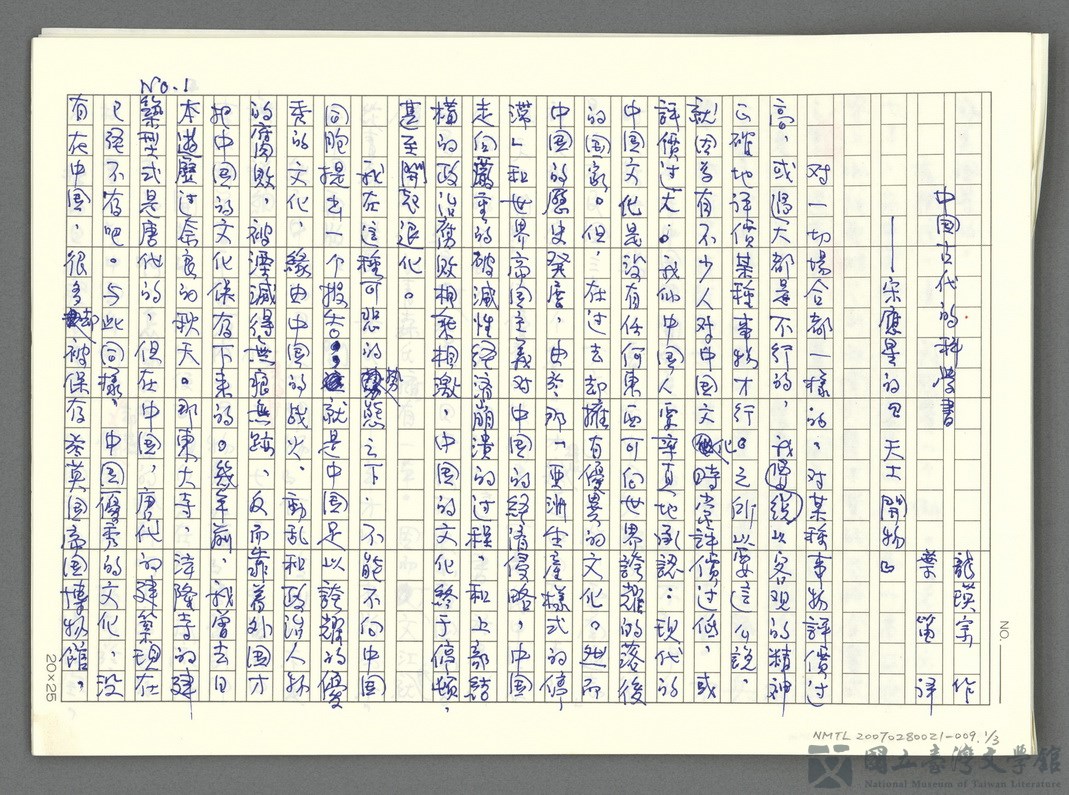 No.1
中国古代的科学書
——宋應星的『天工開物』
龍瑛宗 作
葉笛 译
对一切場合都一様的。对某種事物評價过
高，或過大都是不行的，我們必須以客观的精神
正確地評價某種事物才行。之所以要這么說，
就因為有不少人对中国文化時常評價过低，或
評價过大。我们中国人要率直地承認：現代的
中国文化是没有任何東西可向世界誇耀的落後
的国家。但，在过去却擁有優異的文化。然而
中国的歷史發展，由於那「亜洲生産様式的停
滞」和世界帝国主義对中国的経済侵略，中国
走向嚴重的破滅性経済崩潰的过程。和上部結
構的政治腐敗相乗相激，中国的文化終于停頓，
甚至開起退化。
我在這種可悲的勢態之下，不能不向中国
同胞提出一个報告。就是中国足以誇耀的優
秀的文化，緣由中国的战火、動乱和政治人物
的腐敗，被湮滅得無痕無跡，反而靠着外国才
把中国的文化保存下来的。幾年前，我曾去日
本遊歷过奈良的秋天。那東大寺、法隆寺的建
築型式是唐代的，但在中国，唐代的建築現在
已經不存吧。与此同樣，中国優秀的文化，没
有在中国，很多却被保存於英国帝国博物館。
NO.
20×25
NMTL 20070280021-009. 1/3
國立臺灣文學館
National Museum of Taiwan Literature